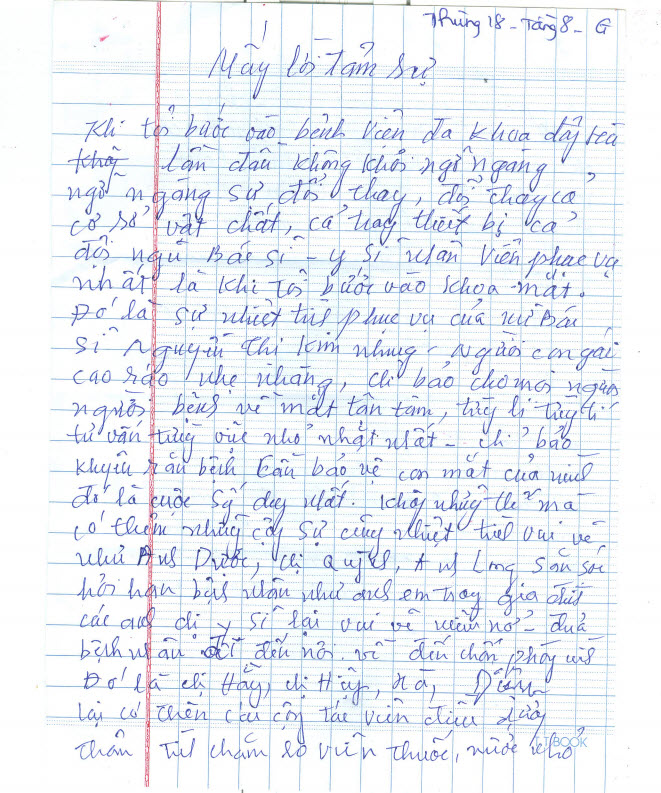 Thùng 18 - Tầng 8 - G
Mấy lời tâm sự
Khi tôi bước vào bệnh viện đa khoa đây
lần đầu không khỏi ngỡ ngàng
ngỡ ngàng sự đổi thay, đổi thay cả
cơ sở vật chất, cả trang thiết bị cả
đội ngũ Bác sĩ - y sĩ nhân viên phục vụ
nhất là khi tôi bước vào khoa mắt.
Đó là sự nhiệt tình phục vụ của nữ Bác
sĩ Nguyễn Thị Kim Nhung - người con gái
cao ráo nhẹ nhàng, chỉ bảo cho mọi người
người bệnh về mắt tận tâm, từng li từng tí
tư vấn từng việc nhỏ nhặt nhất - chỉ bảo
khuyên răn bệnh cần bảo vệ con mắt của mình
đó là cuộc sống duy nhất. Không những thế mà
có thêm những cộng sự cũng nhiệt tình vui vẻ
như Anh Dược, chị Quỳnh, Anh Long săn sóc
hỏi han bệnh nhân như anh em trong gia đình
các anh chị y sĩ lại vui vẻ niềm nở - đưa
bệnh nhân đi đến nơi về đến chốn phòng mình
Đó là chị Hằng, chị Huệ, Hà,
lại có thêm các cộng tác viên điều dưỡng
thân tình chăm lo viên thuốc, nước nhỏ
T.T BOOK